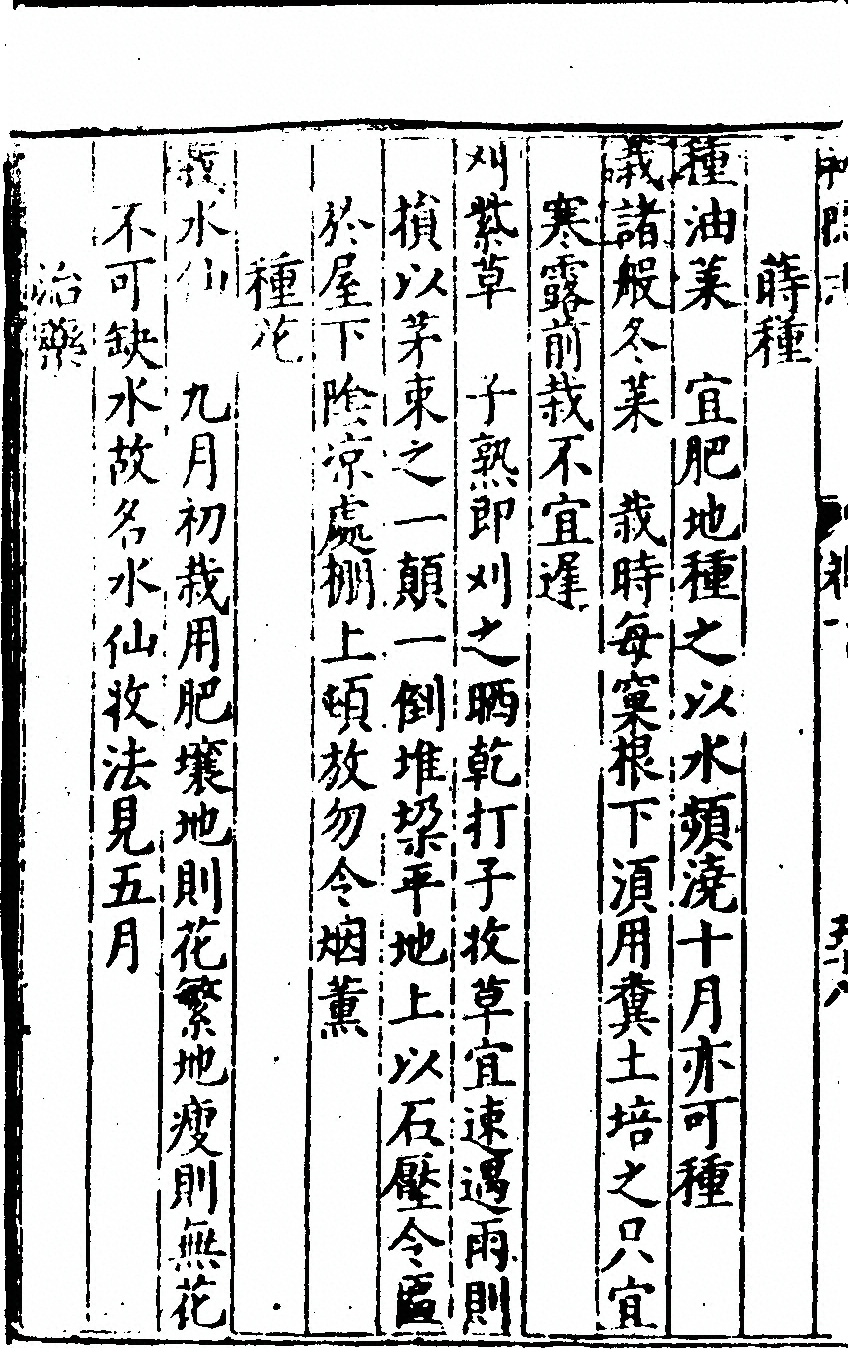 蒔種
種油菜　宜肥地種之以水頻澆十月亦可種
栽諸般冬菜　栽時每窠根下湏用糞土培之只宜
寒露前栽不宜遲
刈紫草　子熟即刈之晒乾打子收草宜速遇雨則
損以茅束之一顛一倒堆垜平地上以石壓令匾
於屋下陰凉處棚上頓放勿令烟薰
種花
栽水仙　九月初栽用肥壤地則花繁地瘦則無花
不可缺水故名水仙收法見五月
治藥